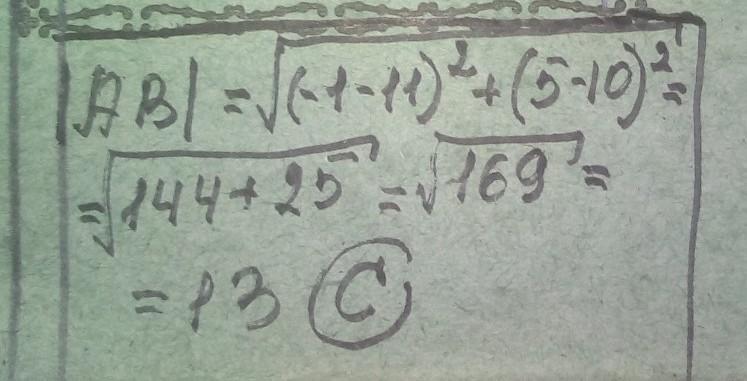 |AB| = √(-1-11)² + (5-10)² =
= √144 + 25 = √169 =
= 13 C